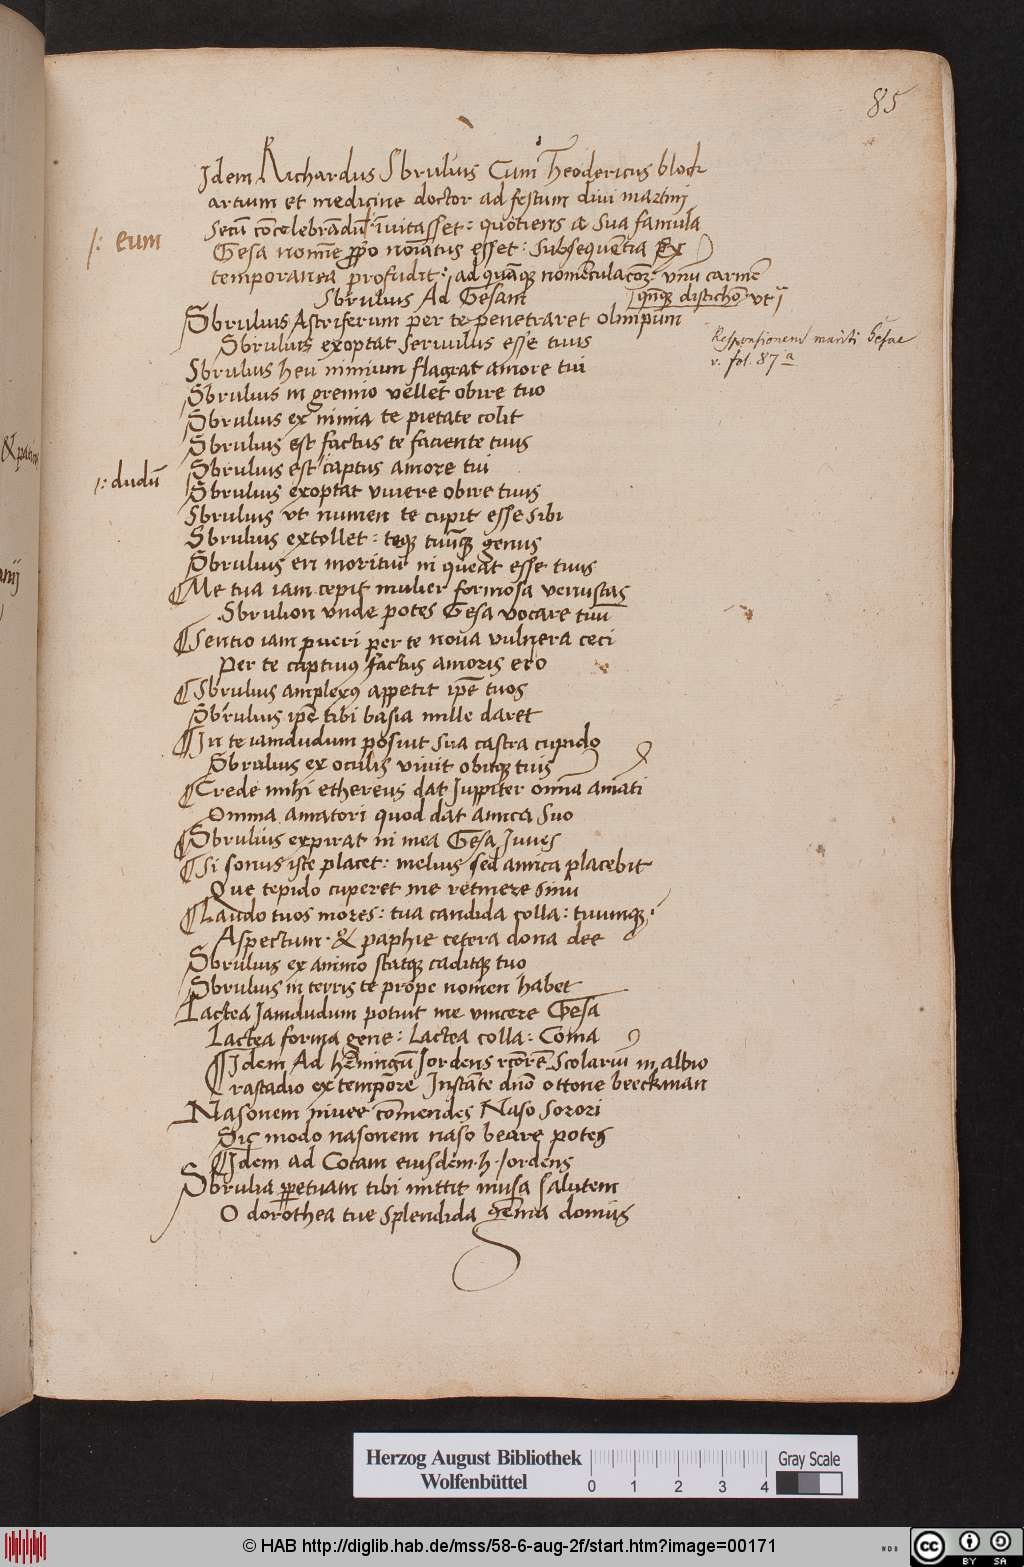 85
Idem Richardus Sbrulius Cum Theodericus block
artium et medicine doctor ad festum divi martinj
Secū cōcelebrādū īvitasset: quotiens a sua famula
|: eum
Gesa nomīe ꝓprio noīatus esset: subsequētia Ex
temporanea profudit: ad quāque nomēclacoꝫ unū carmē
Sbrulius Ad Gesam quīque distichō ut
Sbrulius Astriferum per te penetraret olimpum
Sbrulius exoptat servulus esse tuus
Responsionem mariti Gesae
v. fol. 87 a
Sbrulius heu nimium flagrat amore tui
Sbrulius in gremio vellet obire tuo
Sbrulius ex nimia te pietate colit
Sbrulius est factus te faciente tuus
Sbrulius est captus amore tui
|: dudū
Sbrulius exoptat vivere obire tuus
Sbrulius ut numen te cupit esse sibi
Sbrulius extollet: teque tuūque genus
Sbrulius en moritur ni queat esse tuus
Me tua iam cepit mulier formosa venustas
Sbrulion unde potes Gesa vocare tuū
Sentio iam pueri per te nova vulnera ceci
Per te captivus factus amoris ero
Sbrulius amplexus appetit ipē tuos
Sbrulius ipē tibi basia mille daret
In te iamdudum posuit sua castra cupido
Sbrulius ex oculis vivit obitque tuis
Crede mihi ethereus dat Juppiter omīa amāti
Omnia amatori quod dat amica suo
Sbrulius expirat ni mea Gesa Juves
Si sonus iste placet: melius sed amica placebit
Que tepido cuperet me retinere sinu
Laudo tuos mores: tua candida colla: tuumque
Aspectum. & paphie cetera dona dee
Sbrulius ex animo statque caditque tuo
Sbrulius in terris te prope nomen habet
Lactea Iamdudum potuit me vincere Gesa
Lactea forma gene: Lactea colla: Coma
Idem Ad hēningū Jordens rcōrē Scolariū in albio
rastadio ex tempōre Instāte dn̄o ottone beeckman
Nasonem nivee cōmendes Naso sorori
Sic modo nasonem naso beare potes
Idem ad Cotam eiusdem. h. Jordens
Sbrulia ꝑpetuam tibi mittit musa salutem
O dorothea tue splendida gēma domus
Herzog August Bibliothek
Wolfenbüttel
0 1 2 3 4
Gray Scale
© HAB http://diglib.hab.de/mss/58-6-aug-2f/start.htm?image=00171
cc BY SA